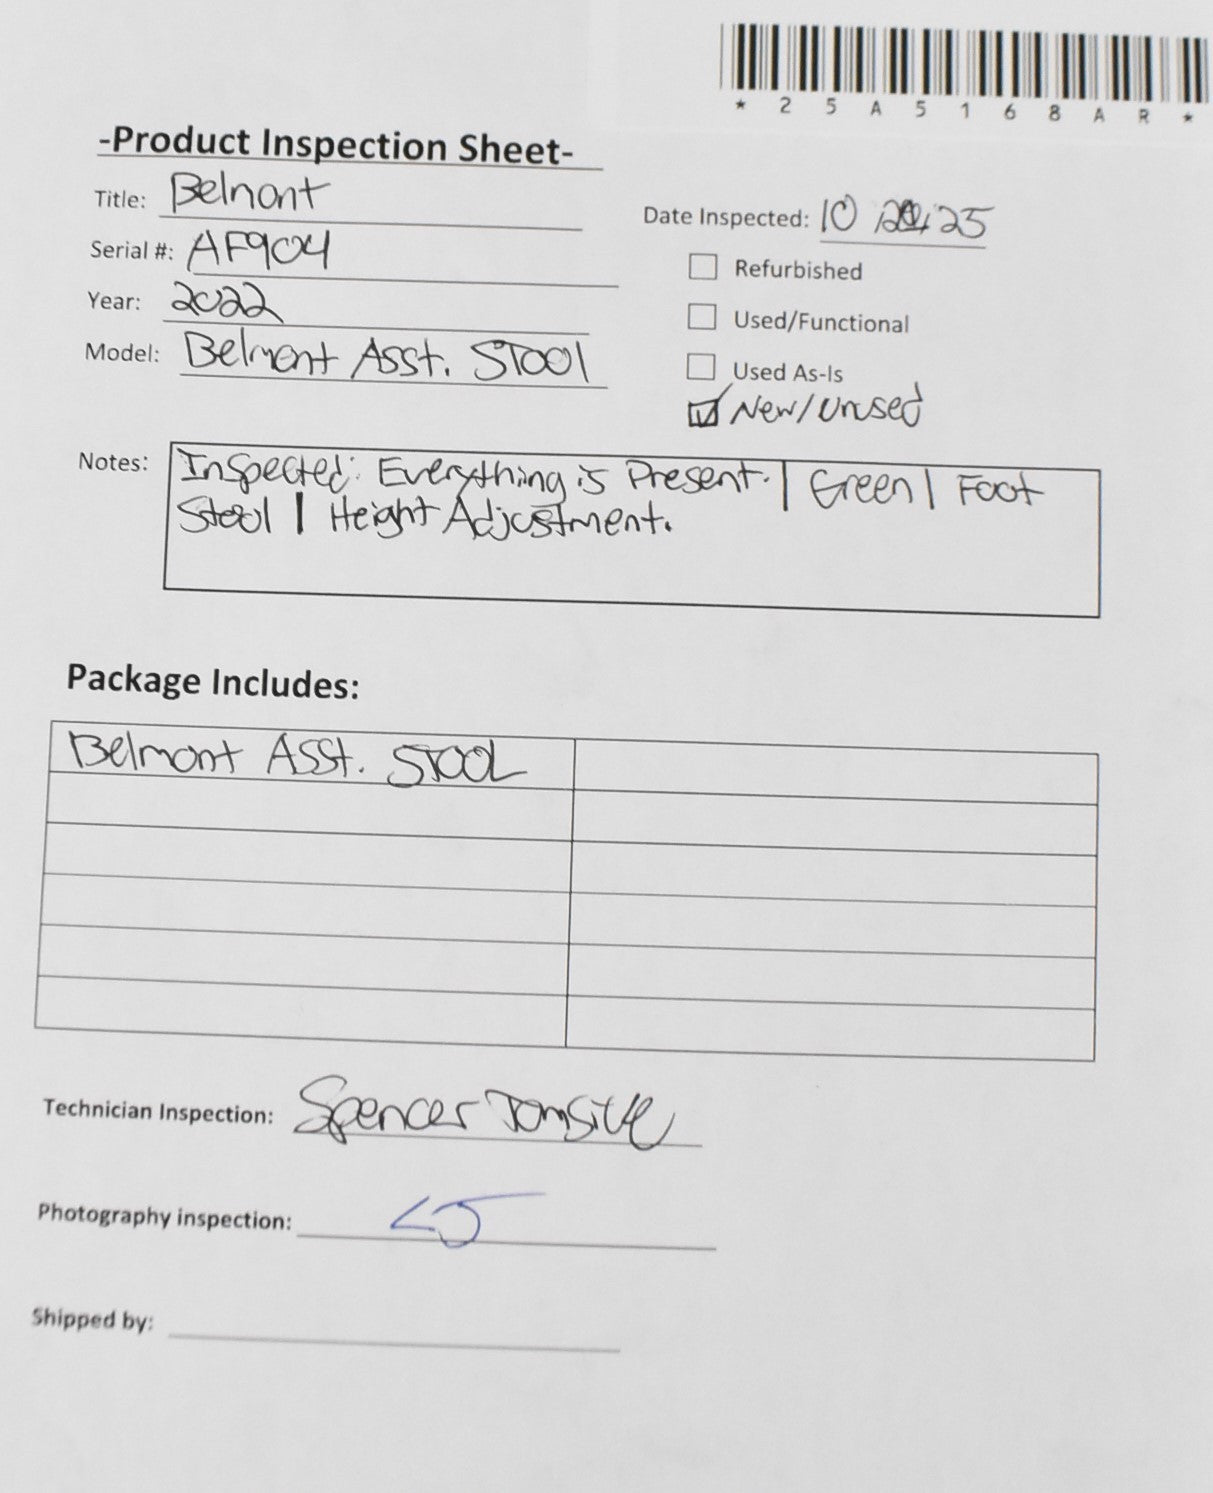 *25A5168AR*
-Product Inspection Sheet-
Title: Belmont
Date Inspected: 10 25
Serial #: AF904
Refurbished
Year: 2022
Used/Functional
Model: Belmont Asst. STOOl
Used As-Is
New/Unused
Notes: Inspected: Everything is Present. | Green | Foot
Stool | Height Adjustment.
Package Includes:
Belmont Asst. STOOL
Technician Inspection: Spencer
Photography inspection:
Shipped by: